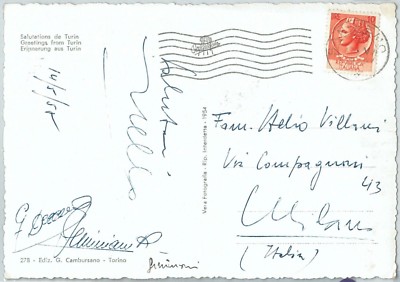 Salutations de Turin
Greetings from Turin
Erinnerung aus Turin
14/5/55
Saluti
Vera Fotografia - Rip. Interdetta - 1954
Fam. Helio Villani
Via Compagnoni
43
Milano
(Italia)
Geminiani R
Geminiani
278 - Ediz. G. Cambursano - Torino